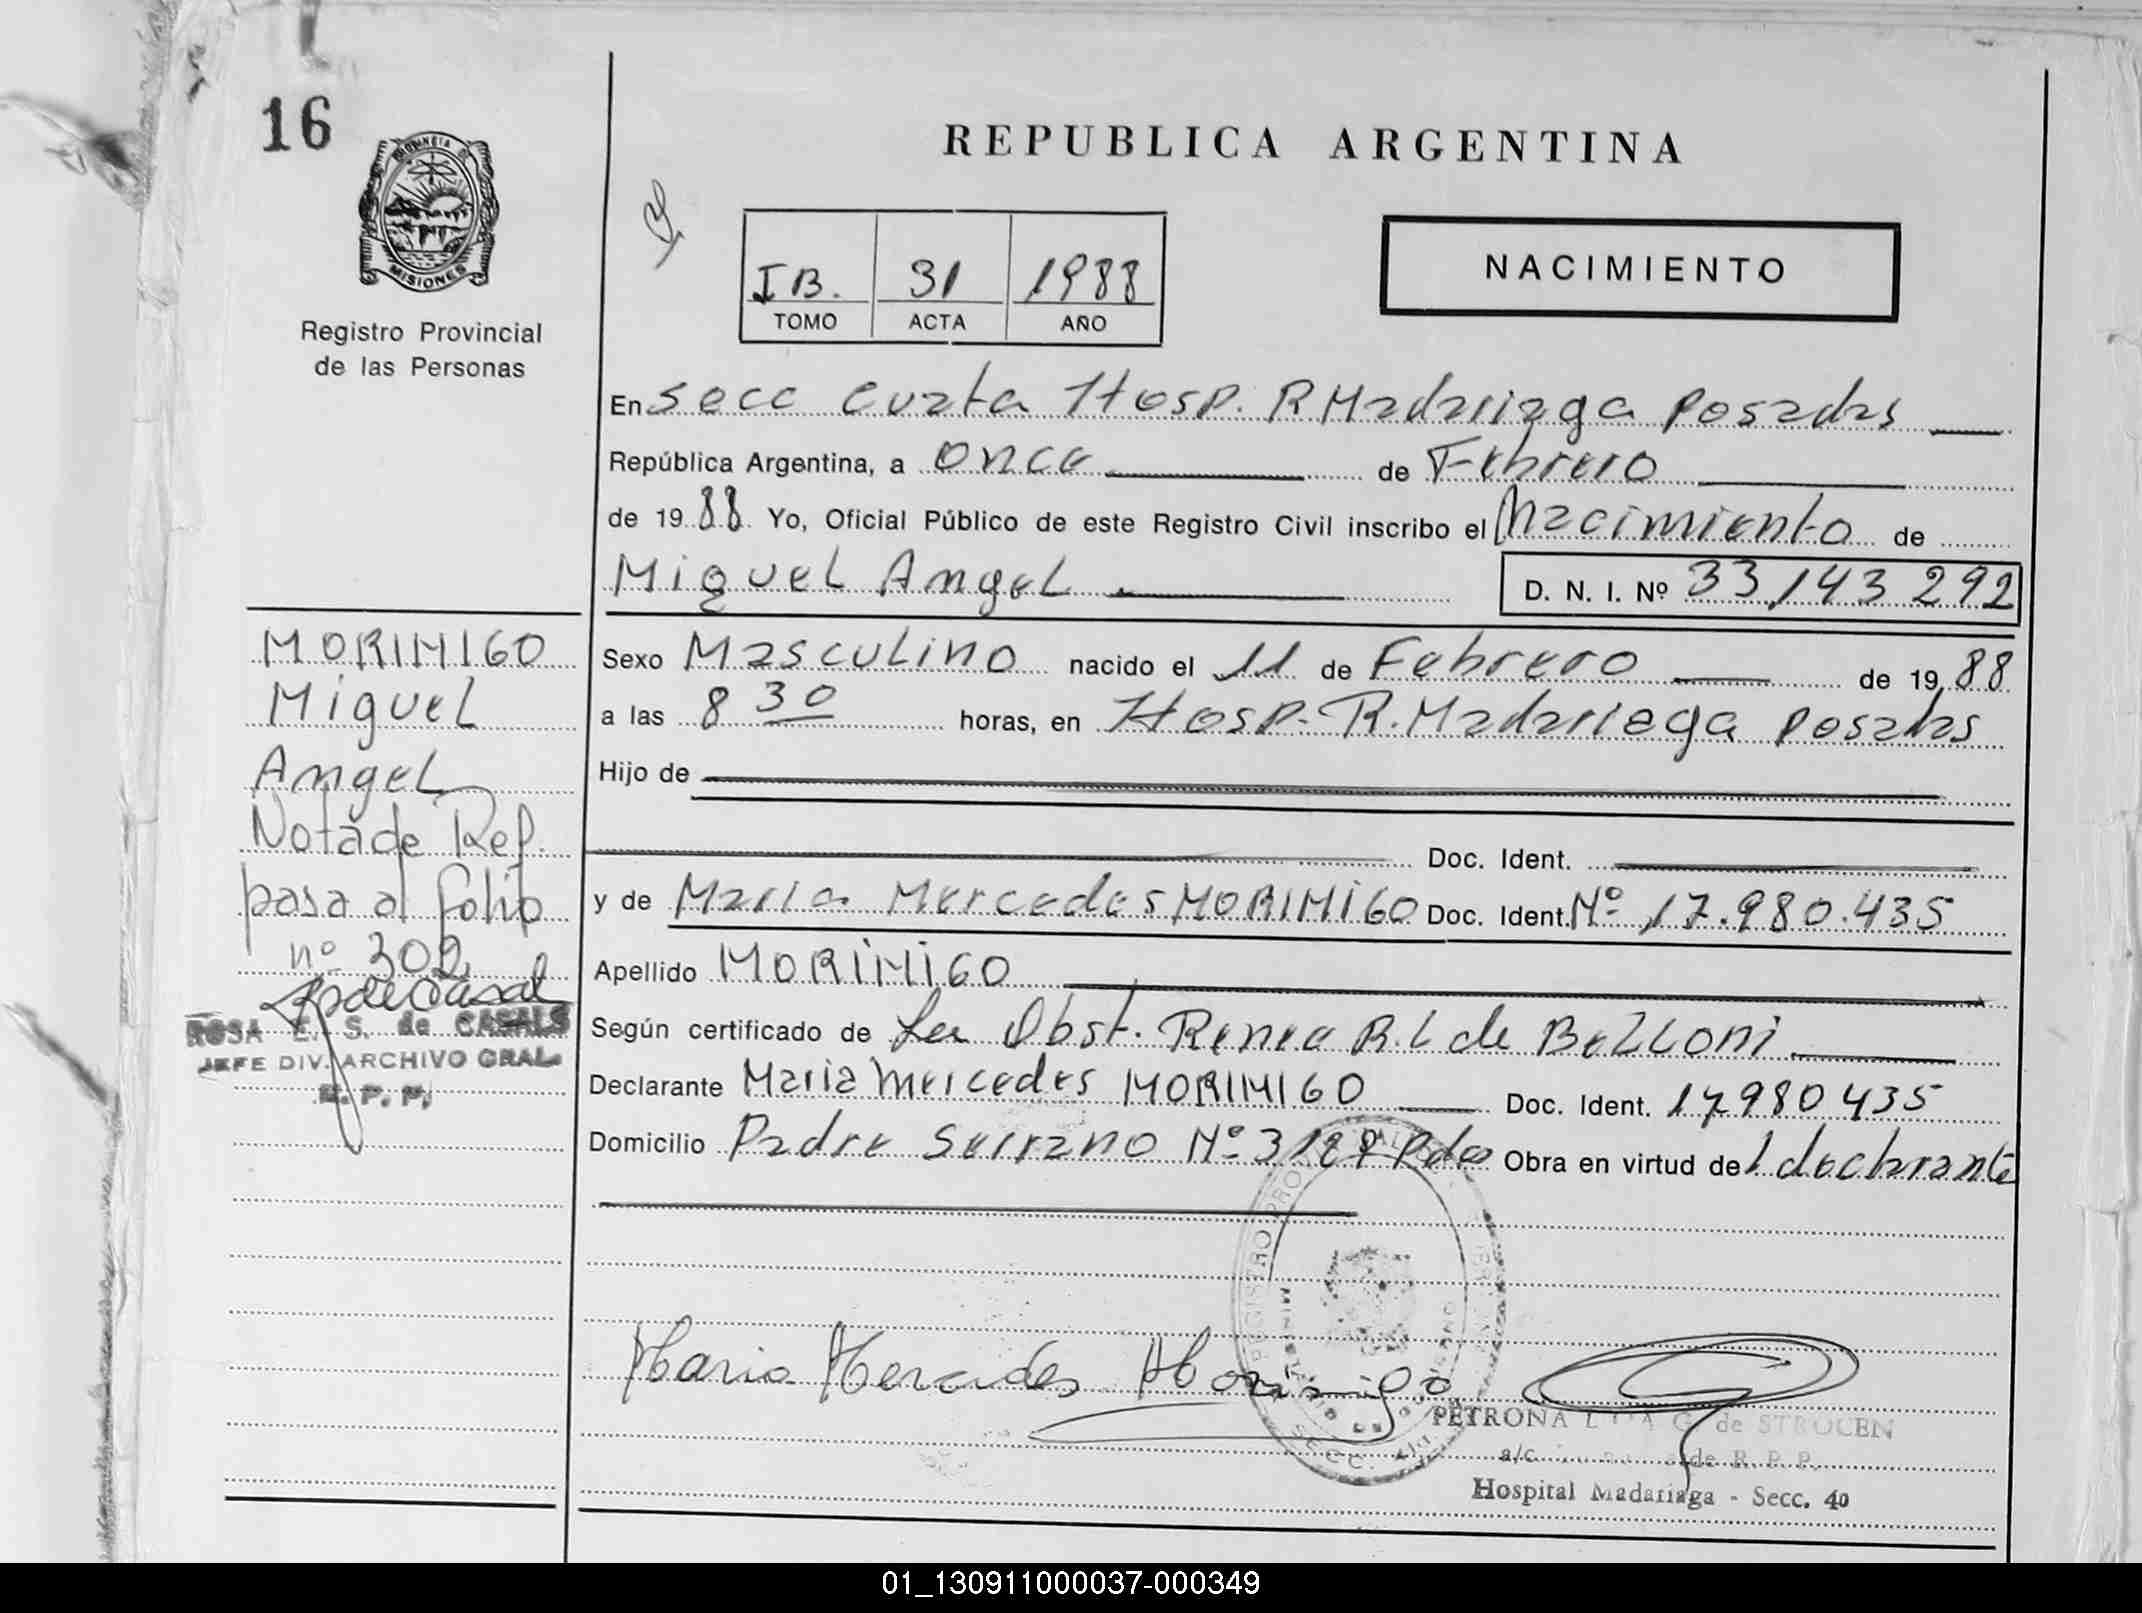 16
PROVINCIA DE
MISIONES
Registro Provincial
de las Personas
REPUBLICA ARGENTINA
IB. 31 1988
TOMO ACTA AÑO
NACIMIENTO
En Secc Cuzta Hosp. R Madariaga Posadas
República Argentina, a Once de Febrero
de 1988 Yo, Oficial Público de este Registro Civil inscribo el Nacimiento de
Miguel Angel D. N. I. Nº 33,143 292
Sexo Masculino nacido el 11 de Febrero de 1988
a las 8 30 horas, en Hosp. R. Madariaga Posadas
Hijo de
Doc. Ident.
y de Maria Mercedes MORINIGO Doc. Ident. Nº 17.980.435
Apellido MORINIGO
Según certificado de La Obst. Renea R. L de Belloni
Declarante Maria Mercedes MORINIGO Doc. Ident. 17980435
Domicilio Padre Serrano Nº Pdas Obra en virtud de l declarante
MORINIGO
Miguel
Angel
Nota de Ref.
pasa al folio
nº 302
ROSA E. S. de CASALS
JEFE DIV. ARCHIVO GRAL.
R. P. P.
Maria Mercedes Morinigo
REGISTRO PROV
MINISTERIO DE GOBIERNO
SECC. 4
PETRONA de STROCEN
a/c de R. P. P.
Hospital Madariaga - Secc. 40
01_130911000037-000349